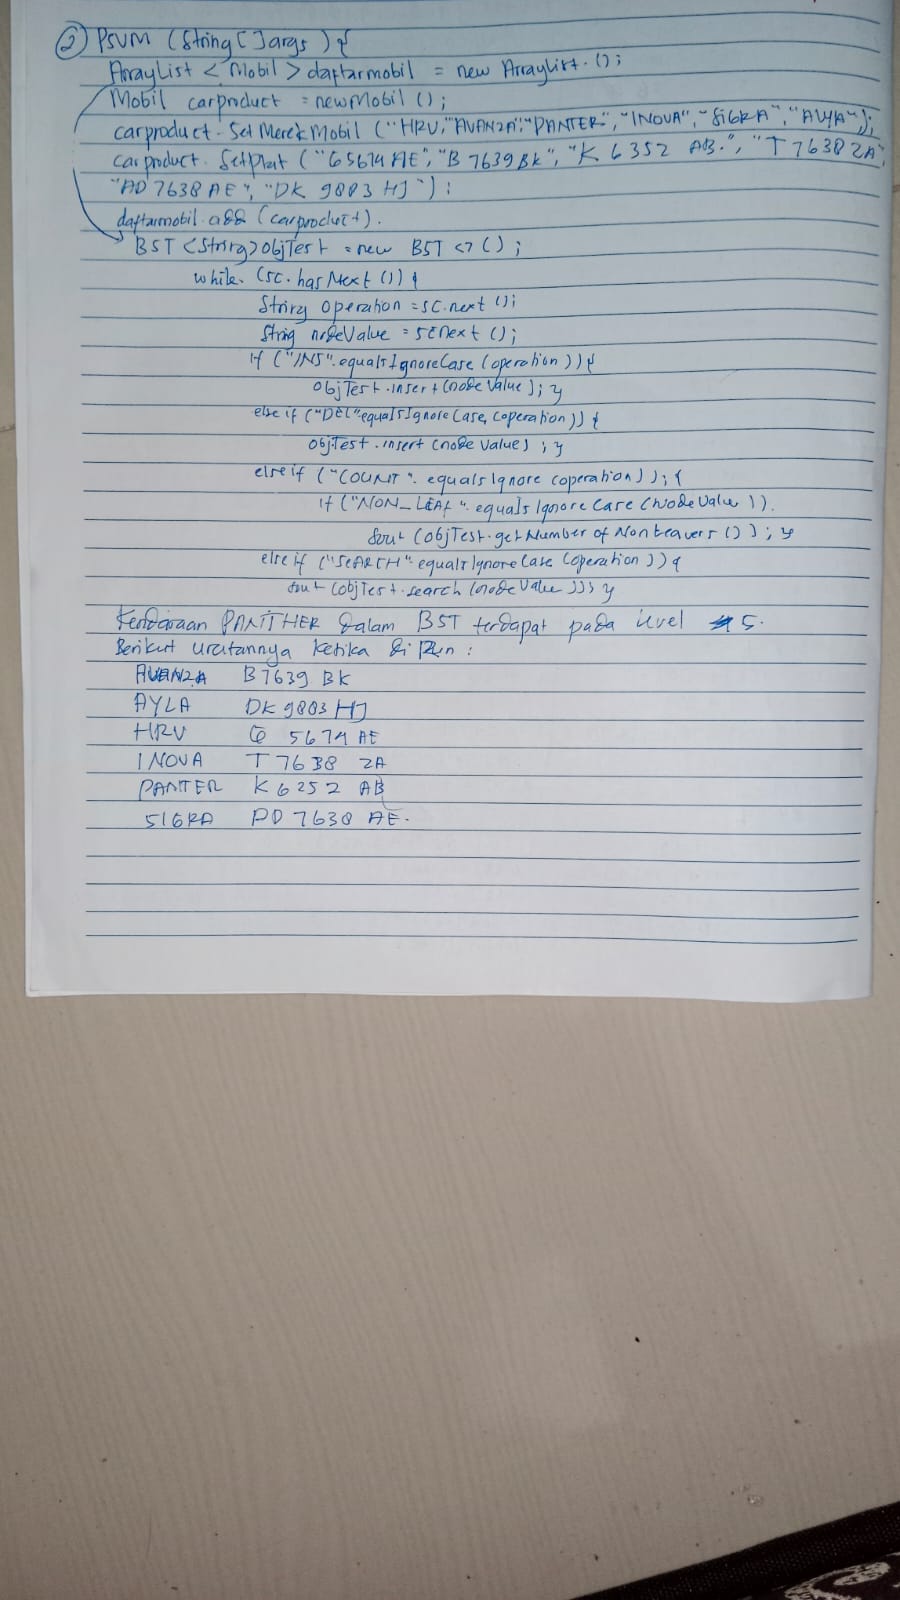 ② PSVM (String[]args){
ArrayList <Mobil> daftarmobil = new ArrayList.();
Mobil carproduct = newMobil ();
carproduct. SetMerekMobil ("HRV,"AVANZA","PANTER","INOVA","SIGRA","AYLA");
carproduct. Setplat ("G5674AE","B 7639BK","K 6352 AB.","T 7638 ZA",
"AD 7638 AE", "DK 9883 HJ");
daftarmobil.add (carproduct).
BST <String>objTest = new BST <> ();
while (sc.hasNext ()) {
String operation = sc.next ();
String nodeValue = scnext ();
if ("INS".equalsIgnoreCase (operation)){
objTest.insert (node Value); }
else if ("DEL"equalsIgnore Case, (operation)) {
objTest.insert (node Value) ; }
else if ("COUNT". equals Ignore (operation) );{
if ("NON_LEAF". equals Ignore Case (NodeValue )).
Sout (objTest.get Number of NonLeavers () ) ; }
else if ("SEARCH".equalsIgnore Case (operation )) {
sout (objTest.search (node Value ))) }
Kendaraan PANTHER dalam BST terdapat pada level 5.
Berikut urutannya ketika di Run :
AVANZA B7639 BK
AYLA DK 9883 HJ
HRV G 5674 AE
INOVA T 7638 ZA
PANTER K 6252 AB
SIGRA AD 7638 AE.